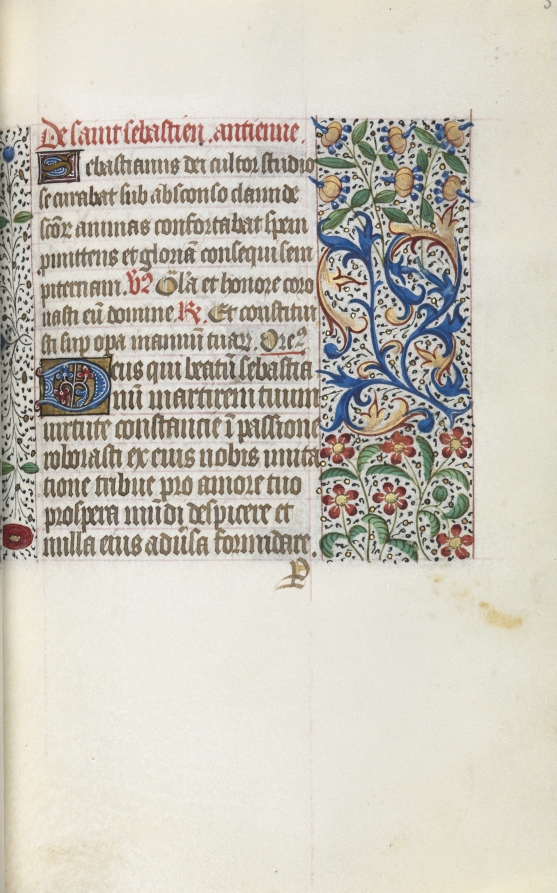 De saint sebastien. antienne.
Sebastianus dei cultor studio
se curabat sub absconso clamide
scõr animas confortabat spem
pmittens et gloriã consequi sem
piternam. V Glã et honore coro
nasti eũ domine R. Et constitui
sti sup opa manuũ tuaꝝ. Oreo
Deus qui beatũ sebastia
nũ martirem tuum
uirtute constancie ĩ passione
roborasti ex eius nobis imita
tione tribue pro amore tuo
prospera mũdi despicere et
nulla eius aduersa formidare.
P